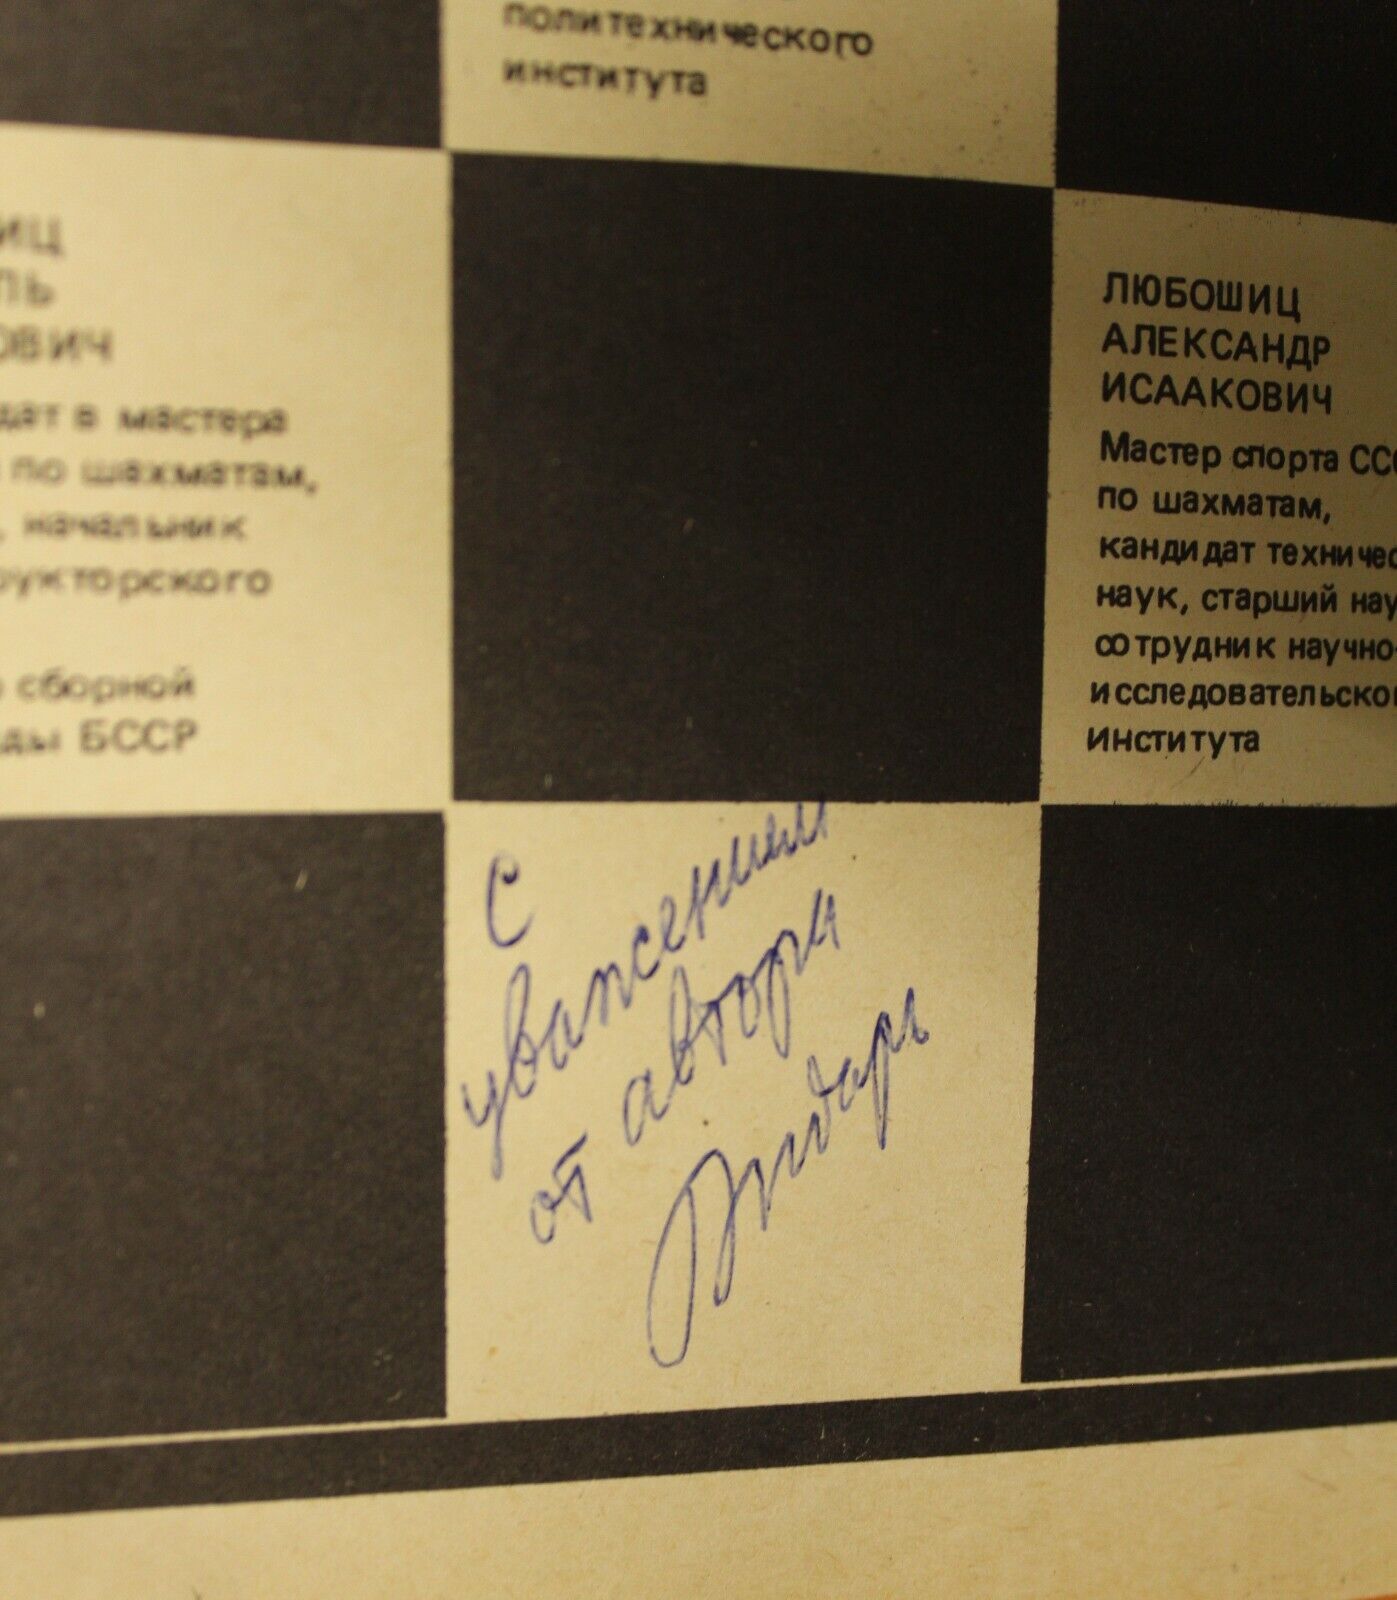 политехнического
института
ИЦ
ЛЬ
ОВИЧ
дат в мастера
по шахматам,
, начальник
рукторского
сборной
ды БССР
ЛЮБОШИЦ
АЛЕКСАНДР
ИСААКОВИЧ
Мастер спорта ССС
по шахматам,
кандидат техничес
наук, старший нау
сотрудник научно-
исследовательског
института
С
уважением
от автора